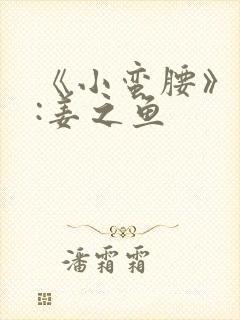 《小蛮腰》
:姜之鱼
潘霜霜